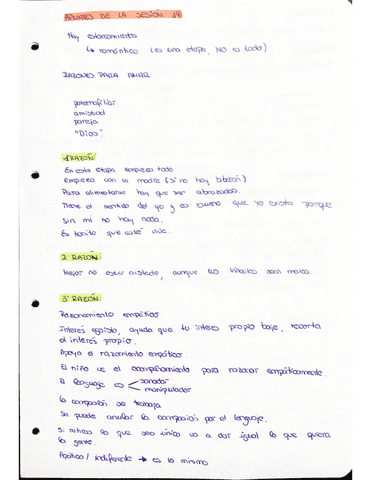 APUNTES DE LA SESIÓN 14
Hay estancamiento
↳ romántico (es una etapa, NO es todo)
RAZONES PARA AMAR
paternofilial
amistad
pareja
"Dios".
1ª RAZÓN
En esta etapa empieza todo.
Empieza con la madre (si no hay biberón)
Para alimentarse hay que ser abrazados.
Tiene el sentido del yo y es bueno que yo exista porque
sin mi no hay nada.
Es bonito que esté viva.
2ª RAZÓN
Mejor no estar aislado, aunque los vínculos sean malos.
3ª RAZÓN
Razonamiento empático
Interés egoísta, ayuda que tu interés propio baje, recorta
el interés propio.
Apoya el razamiento empático.
El niño ve el acompañamiento para razonar empáticamente.
El lenguaje es sanador
manipulador
La compasión se trabaja
Se puede anular la compasión por el lenguaje.
Si miras lo que sea único va a dar igual lo que quiera
la gente.
Apático / indiferente → es lo mismo